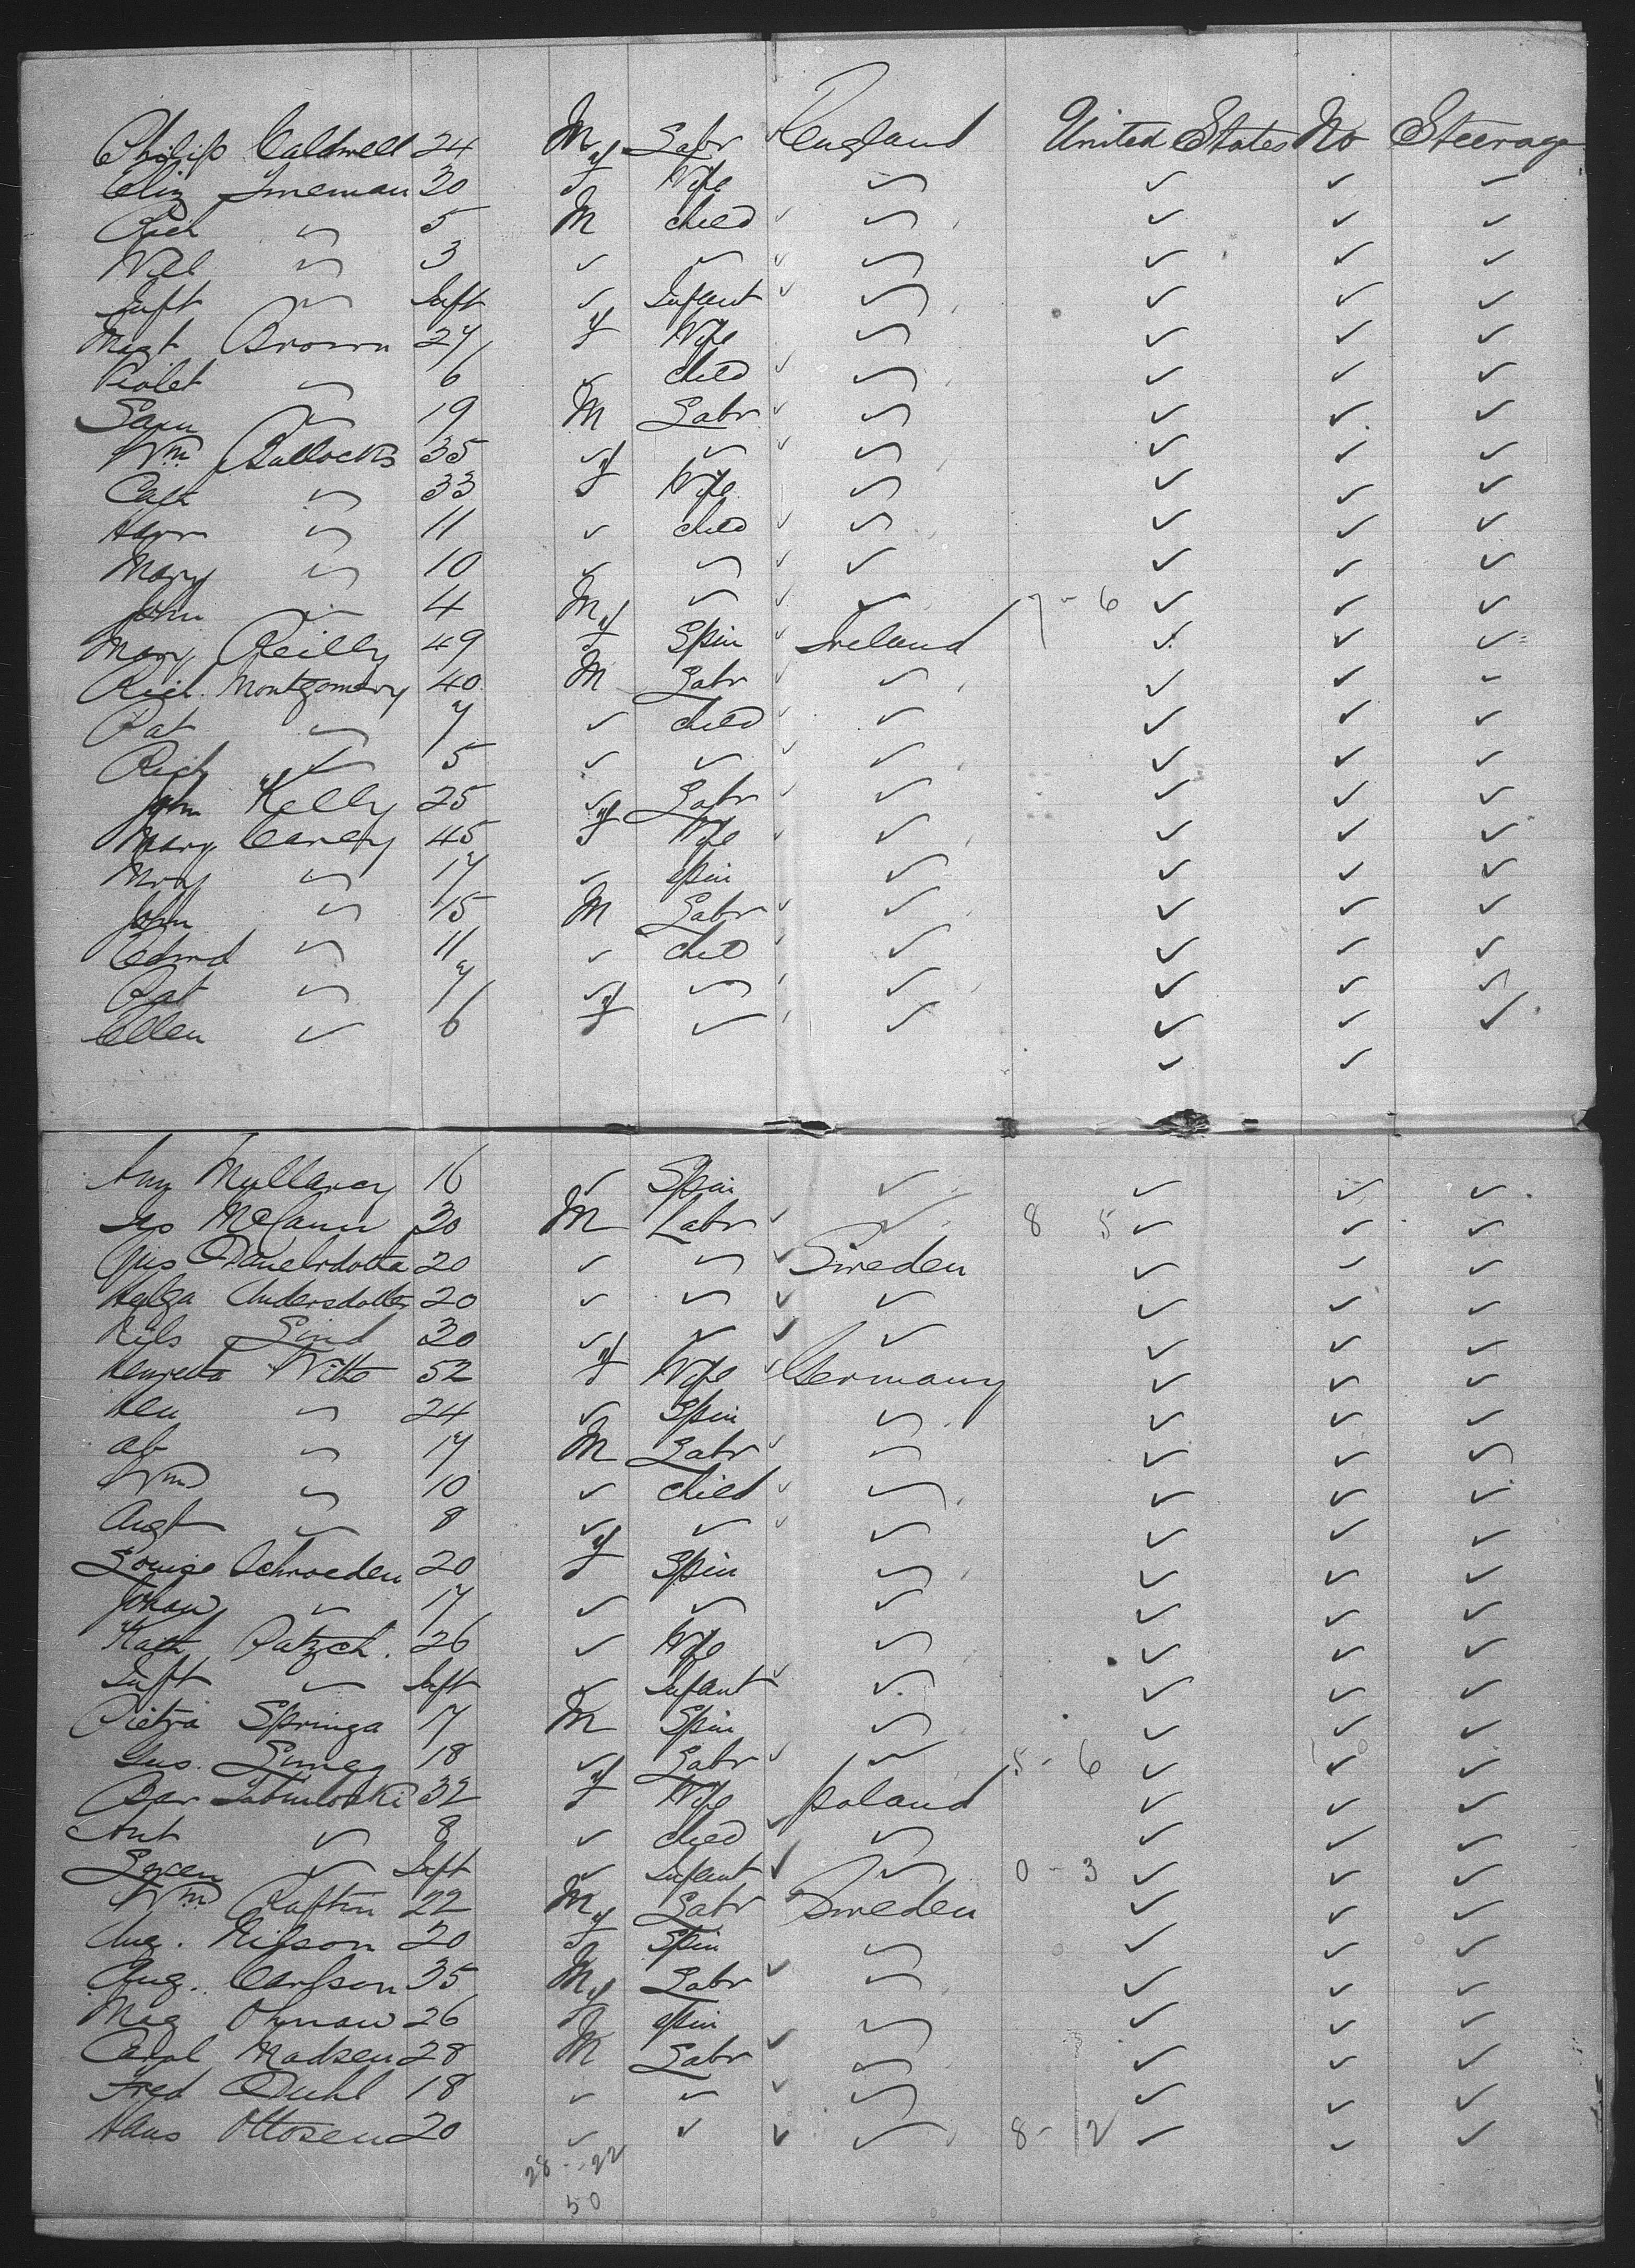 Philip Caldwell 24 M Labr England United States No Steerage
Eliz Inneman 30 f Wife ✓ ✓ ✓ ✓
Rich ✓ 5 M child ✓ ✓ ✓ ✓
Will ✓ 3 ✓ ✓ ✓ ✓ ✓ ✓
Inft ✓ Inft ✓ Infant ✓ ✓ ✓ ✓
Mart Brown 27 f Wife ✓ ✓ ✓ ✓
Violet ✓ 6 ✓ child ✓ ✓ ✓ ✓
Sam ✓ 19 M Labr ✓ ✓ ✓ ✓
Wm Bullocks 35 ✓ ✓ ✓ ✓ ✓ ✓
Cath ✓ 33 f Wife ✓ ✓ ✓ ✓
Harr ✓ 11 ✓ child ✓ ✓ ✓ ✓
Mary ✓ 10 ✓ ✓ ✓ ✓ ✓ ✓
John ✓ 4 M ✓ ✓ 7-6 ✓ ✓ ✓
Mary Reilly 49 f Spin Ireland ✓ ✓ ✓
Rich. Montgomery 40 M Labr ✓ ✓ ✓ ✓
Pat ✓ 7 ✓ child ✓ ✓ ✓ ✓
Rich ✓ 5 ✓ ✓ ✓ ✓ ✓ ✓
John Kelly 25 ✓ Labr ✓ ✓ ✓ ✓
Mary Carey 45 f Wife ✓ ✓ ✓ ✓
Mry ✓ 17 ✓ Spin ✓ ✓ ✓ ✓
John ✓ 15 M Labr ✓ ✓ ✓ ✓
Edmd ✓ 11 ✓ child ✓ ✓ ✓ ✓
Pat ✓ 7 ✓ ✓ ✓ ✓ ✓ ✓
Ellen ✓ 6 f ✓ ✓ ✓ ✓ ✓
✓ ✓
Any Mullarey 16 ✓ Spin ✓ ✓ ✓ ✓
Jas McCann 30 M Labr ✓ 8 5 ✓ ✓ ✓
Danelsdotta 20 ✓ ✓ Sweden ✓ ✓ ✓
Helga Andersdotter 20 ✓ ✓ ✓ ✓ ✓ ✓
Nils Lind 30 ✓ ✓ ✓ ✓ ✓ ✓
Henrietta Witte 52 f Wife Germany ✓ ✓ ✓
Hen ✓ 24 ✓ Spin ✓ ✓ ✓ ✓
Ab ✓ 17 M Labr ✓ ✓ ✓ ✓
Wm ✓ 10 ✓ child ✓ ✓ ✓ ✓
Augt ✓ 8 ✓ ✓ ✓ ✓ ✓ ✓
Louise Schroeden 20 f Spin ✓ ✓ ✓ ✓
Johan ✓ 17 ✓ ✓ ✓ ✓ ✓ ✓
Kath Patzch. 26 ✓ Wife ✓ ✓ ✓ ✓
Inft ✓ Inft ✓ Infant ✓ ✓ ✓ ✓
Pietra Springa 17 M Spin ✓ ✓ ✓ ✓
Gus. 18 ✓ Labr ✓ 5-6 ✓ ✓ ✓
Bar 32 f Wife Poland ✓ ✓ ✓
Ant ✓ 8 ✓ child ✓ ✓ ✓ ✓
✓ Inft ✓ Infant ✓ 0-3 ✓ ✓ ✓
Wm Raftin 22 M Labr Sweden ✓ ✓ ✓
Aug. Nilson 20 f Spin ✓ ✓ ✓ ✓
Aug. Carlson 35 M Labr ✓ ✓ ✓ ✓
Mag Ohman 26 f Spin ✓ ✓ ✓ ✓
Carol Madsen 28 M Labr ✓ ✓ ✓ ✓
Fred Duhl 18 ✓ ✓ ✓ ✓ ✓ ✓
Hans Ottosen 20 ✓ ✓ ✓ 8-12 ✓ ✓ ✓
28-22
50